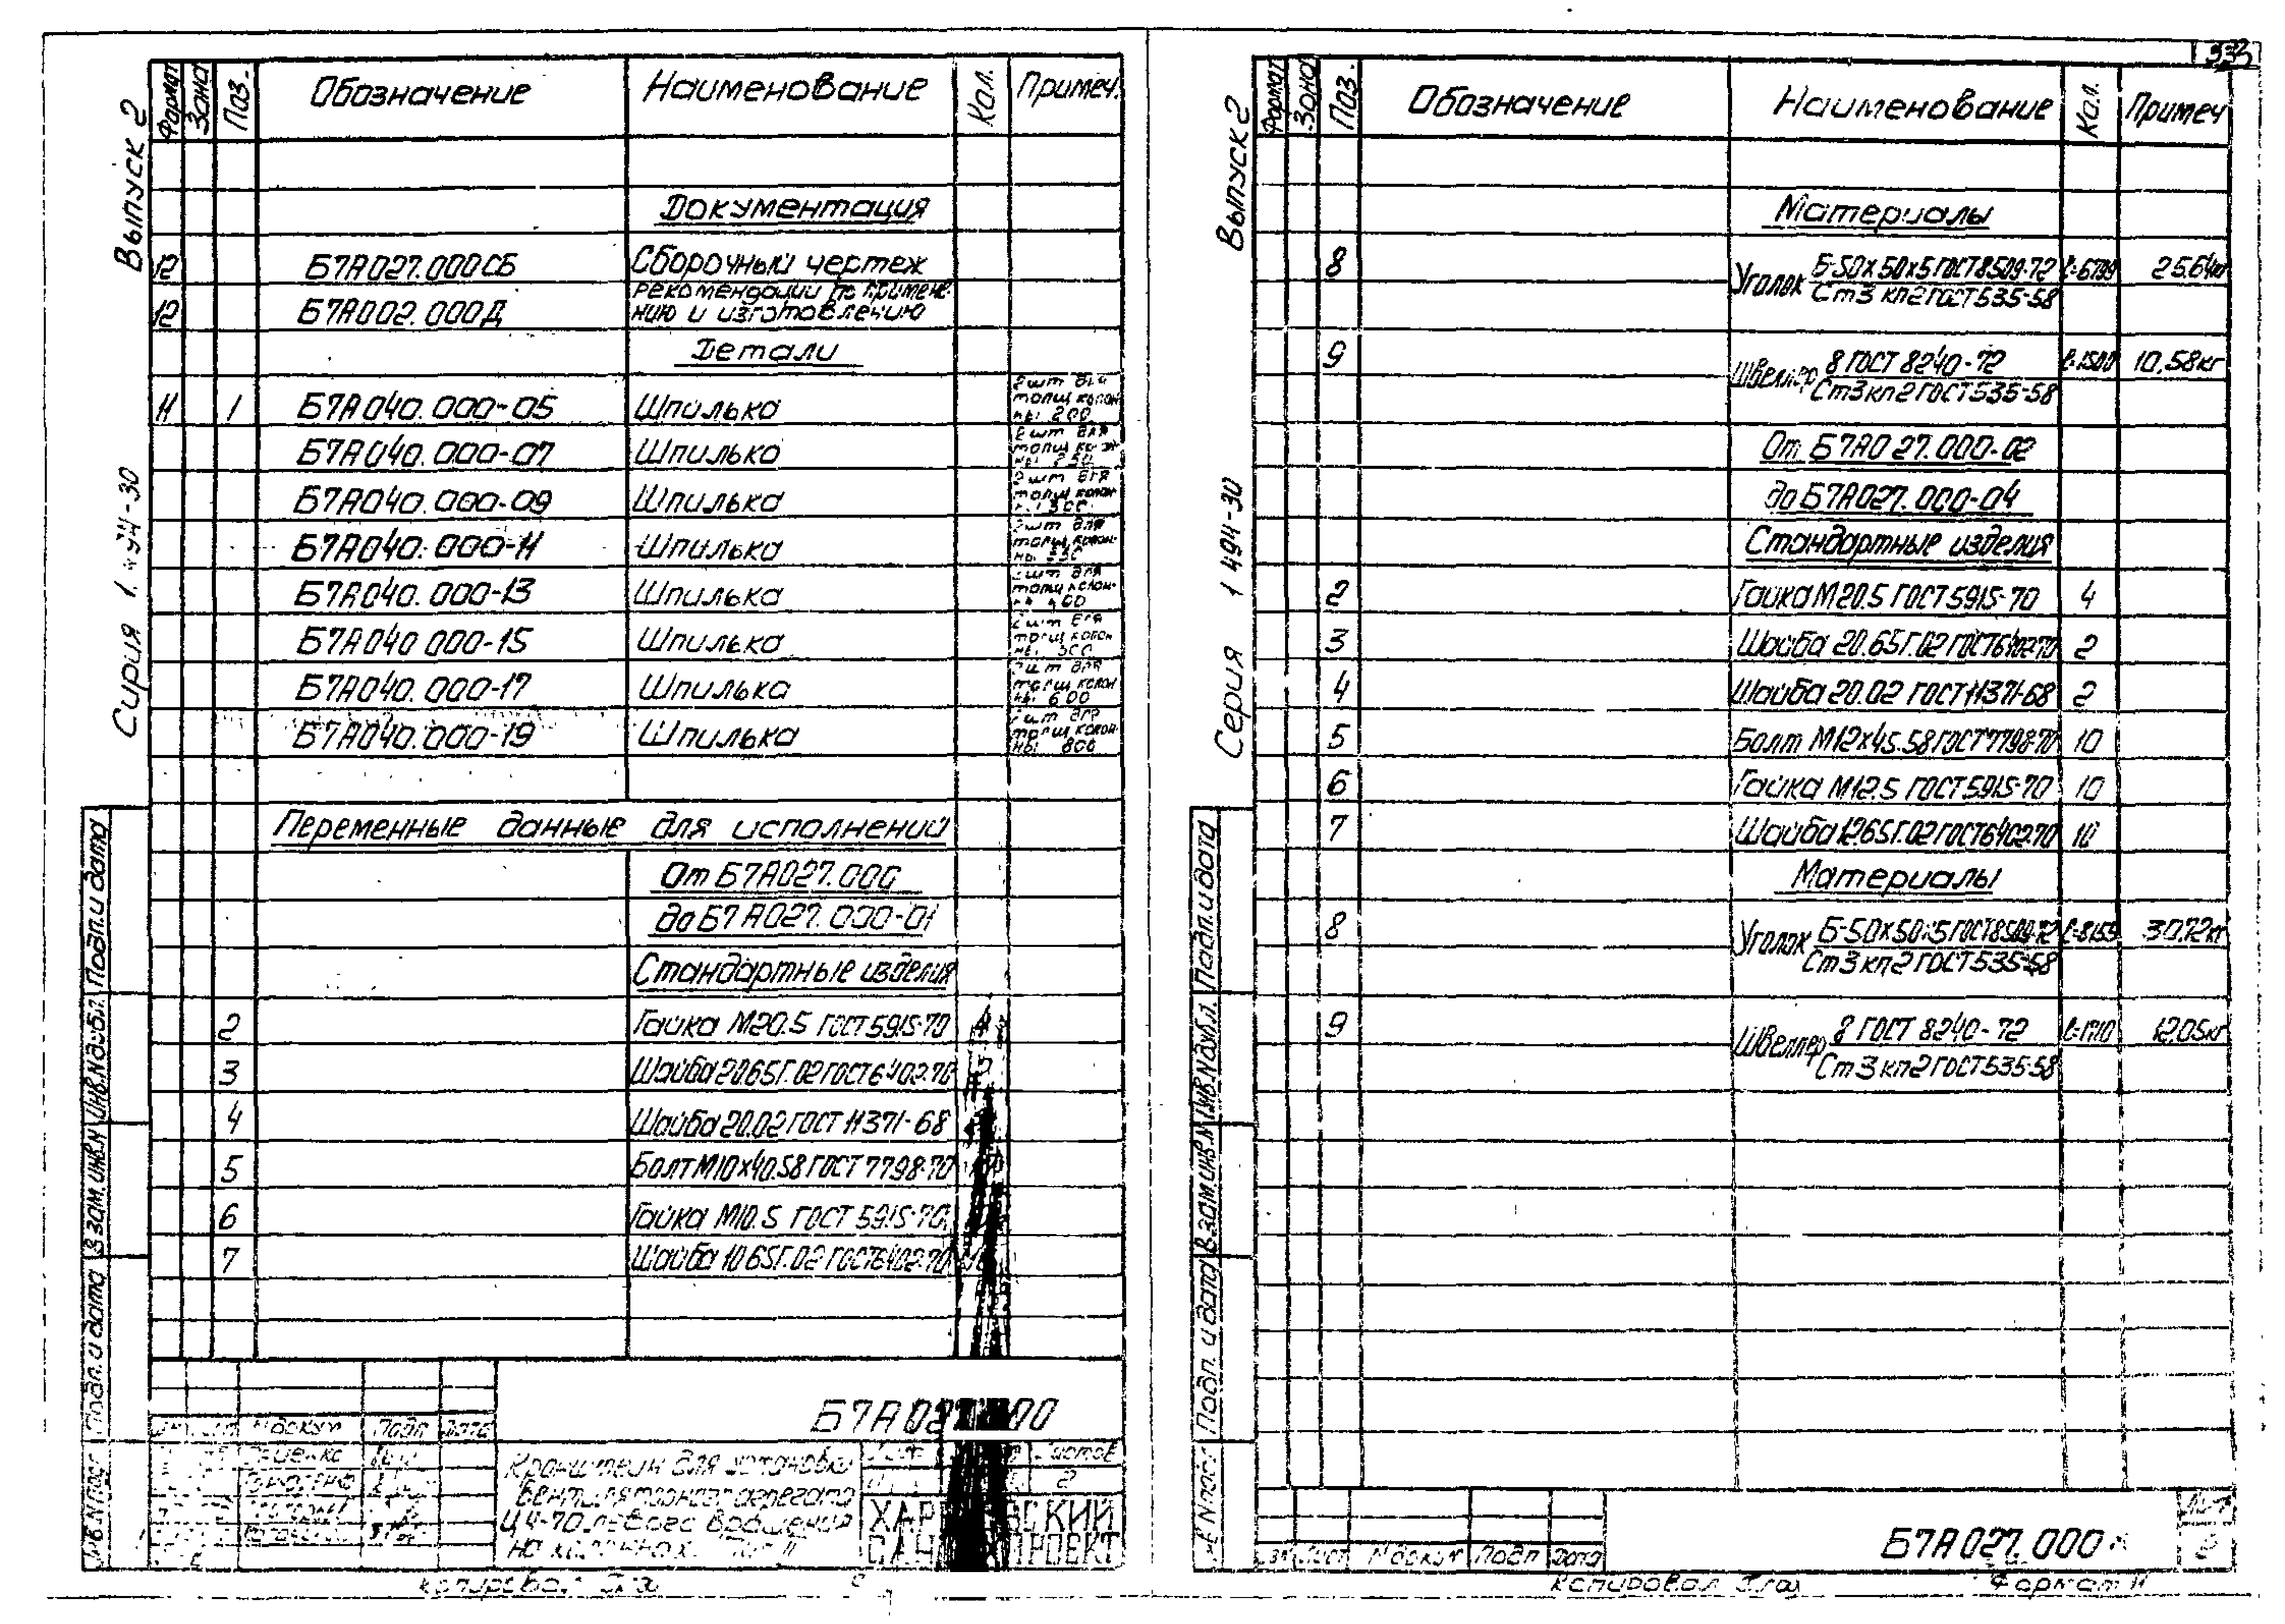 Выпуск 2
Серия 1.494-30
Формат Зона Поз. Обозначение Наименование Кол. Примеч.
Документация
12 Б7А027.000СБ Сборочный чертеж
12 Б7А002.000Д Рекомендации по примене-
нию и изготовлению
Детали
11 1 Б7А040.000-05 Шпилька 2 шт для
толщ колон
ны 200
Б7А040.000-07 Шпилька 2 шт для
толщ колон
ны 250
Б7А040.000-09 Шпилька 2 шт для
толщ колон
300
Б7А040.000-11 Шпилька 2 шт для
толщ колон-
ны
Б7А040.000-13 Шпилька шт для
толщ колон-
400
Б7А040.000-15 Шпилька 2 шт для
толщ колон
ны
Б7А040.000-17 Шпилька шт для
толщ колон
ны 600
Б7А040.000-19 Шпилька шт для
толщ колон
ны 800
Переменные данные для исполнений
От Б7А027.000
до Б7А027.000-01
Стандартные изделия
2 Гайка М20.5 ГОСТ 5915-70
3 Шайба 20.65Г.02 ГОСТ 6402-70
4 Шайба 20.02 ГОСТ 11371-68
5 Болт М10×40.58 ГОСТ 7798-70
6 Гайка М10.5 ГОСТ 5915-70
7 Шайба 10.65Г.02 ГОСТ 6402-70
Подп. и дата
Инв.N дубл.
Взам.инв.N
Подп. и дата
N докум Подп Дата
Б7А027.000
Кронштейн для установки
вентиляторного агрегата
Ц4-70 левого вращения
на колоннах. Тип II
Листов
2
Копировал
Выпуск 2
Серия 1.494-30
Формат Зона Поз. Обозначение Наименование Кол. Примеч
Материалы
8 Уголок Б-50×50×5 ГОСТ 8509-72 ℓ=6799 25.64кг
Ст3 кп2 ГОСТ 535-58
9 Швеллер 8 ГОСТ 8240-72 ℓ=1500 10,58кг
Ст3 кп2 ГОСТ 535-58
От Б7А027.000-02
до Б7А027.000-04
Стандартные изделия
2 Гайка М20.5 ГОСТ 5915-70 4
3 Шайба 20.65Г.02 ГОСТ 6402-70 2
4 Шайба 20.02 ГОСТ 11371-68 2
5 Болт М12×45.58 ГОСТ 7798-70 10
6 Гайка М12.5 ГОСТ 5915-70 10
7 Шайба 12.65Г.02 ГОСТ 6402-70 10
Материалы
8 Уголок Б-50×50×5 ГОСТ 8509-72 30.72кг
Ст3 кп2 ГОСТ 535-58
9 Швеллер 8 ГОСТ 8240-72 ℓ=1710 12.05кг
Ст3 кп2 ГОСТ 535-58
Подп. и дата
Инв.N дубл.
Взам.инв.N
Подп. и дата
Лист N докум Подп Дата
Б7А027.000
Лист
2
Копировал
Формат 11